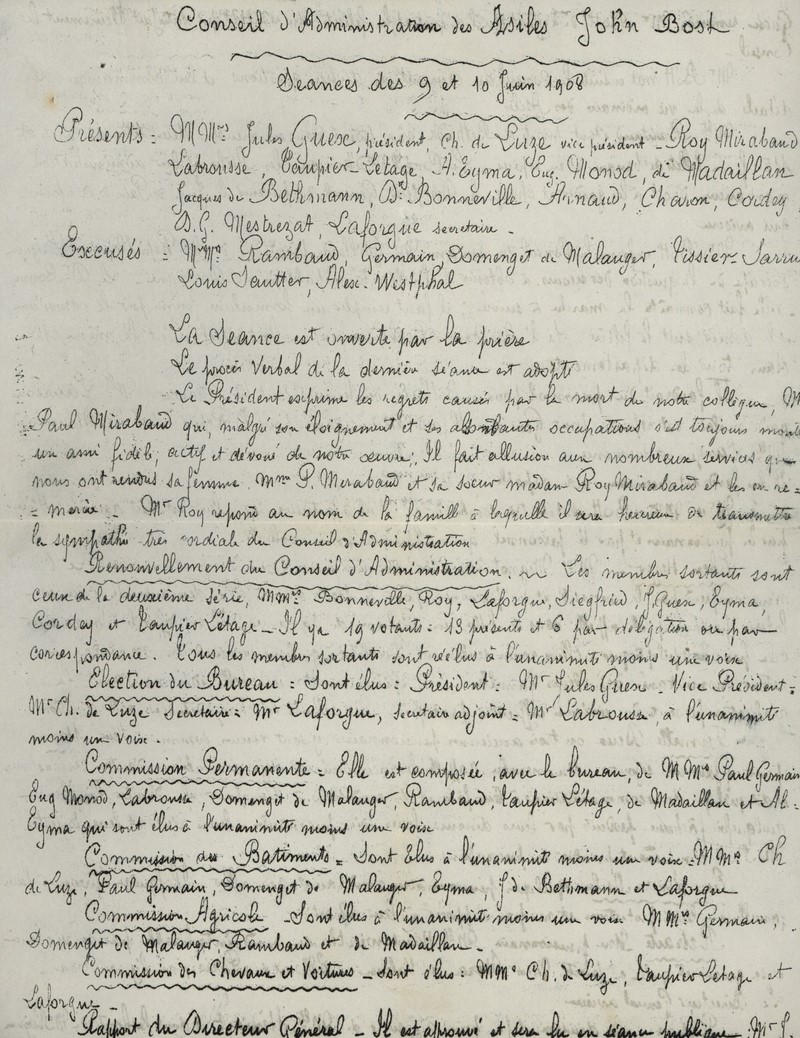 Conseil d'Administration des Asiles John Bost
Seances des 9 et 10 Juin 1908
Présents : MMrs Jules Guex, président, Ch. de Luze vice président - Roy Mirabaud
Labrousse, Taupier-Letage, A. Eyma, Eug. Monod, de Madaillan
Jacques de Bethmann, Dr. Bonneville, Arnaud, Charon, Cordey,
D.G. Mestrezat, Laforgue secretaire -
Excusés : MMrs Rambaud, Germain, Domenget de Malauger, Tissier-Sarrus
Louis Sautter, Alex. Westphal
La Seance est ouverte par la prière
Le procès Verbal de la dernière séance est adopté
Le Président exprime les regrets causés par la mort de notre collègue, M
Paul Mirabaud qui, malgré son éloignement et ses absorbantes occupations s'est toujours montr
un ami fidèle, actif et dévoué de notre œuvre. Il fait allusion aux nombreux services que
nous ont rendus sa femme Mme P. Mirabaud et sa sœur madame Roy Mirabaud et les en re=
=mercie - Mr Roy repond au nom de la famille à laquelle il sera heureux de transmettre
la sympathie très cordiale du Conseil d'Administration
Renouvellement du Conseil d'Administration. ~ Les membres sortants sont
ceux de la deuxième série, MMrs Bonneville, Roy, Laforgue, Siegfried, J. Guex, Eyma,
Cordey et Taupier Létage - Il y a 19 votants : 13 présents et 6 par délégation ou par
correspondance. Tous les membres sortants sont réélus à l'unanimité moins une voix
Election du Bureau = Sont élus : Président : Mr Jules Guex - Vice Président =
Mr Ch. de Luze Secretaire = Mr Laforgue, secretaire adjoint = Mr Labrousse, à l'unanimité
moins une voix.
Commission Permanente = Elle est composée, avec le bureau, de MMrs Paul Germain
Eug Monod, Labrousse, Domenget de Malauger, Rambaud, Taupier Létage, de Madaillan et Al=
Eyma qui sont élus à l'unanimité moins une voix
Commission des Batiments = Sont Elus à l'unanimité moins une voix = MMrs Ch
de Luze, Paul Germain, Domenget de Malauger, Eyma, J de Bethmann et Laforgue
Commission Agricole - Sont élus à l'unanimité moins une voix MMrs Germain,
Domenget de Malauger, Rambaud et de Madaillan -
Commission des Chevaux et Voitures - Sont élus : MMrs Ch. de Luze, Taupier Letage et
Laforgue -
Rapport du Directeur Général - Il est approuvé et sera lu en séance publique. Mr J.